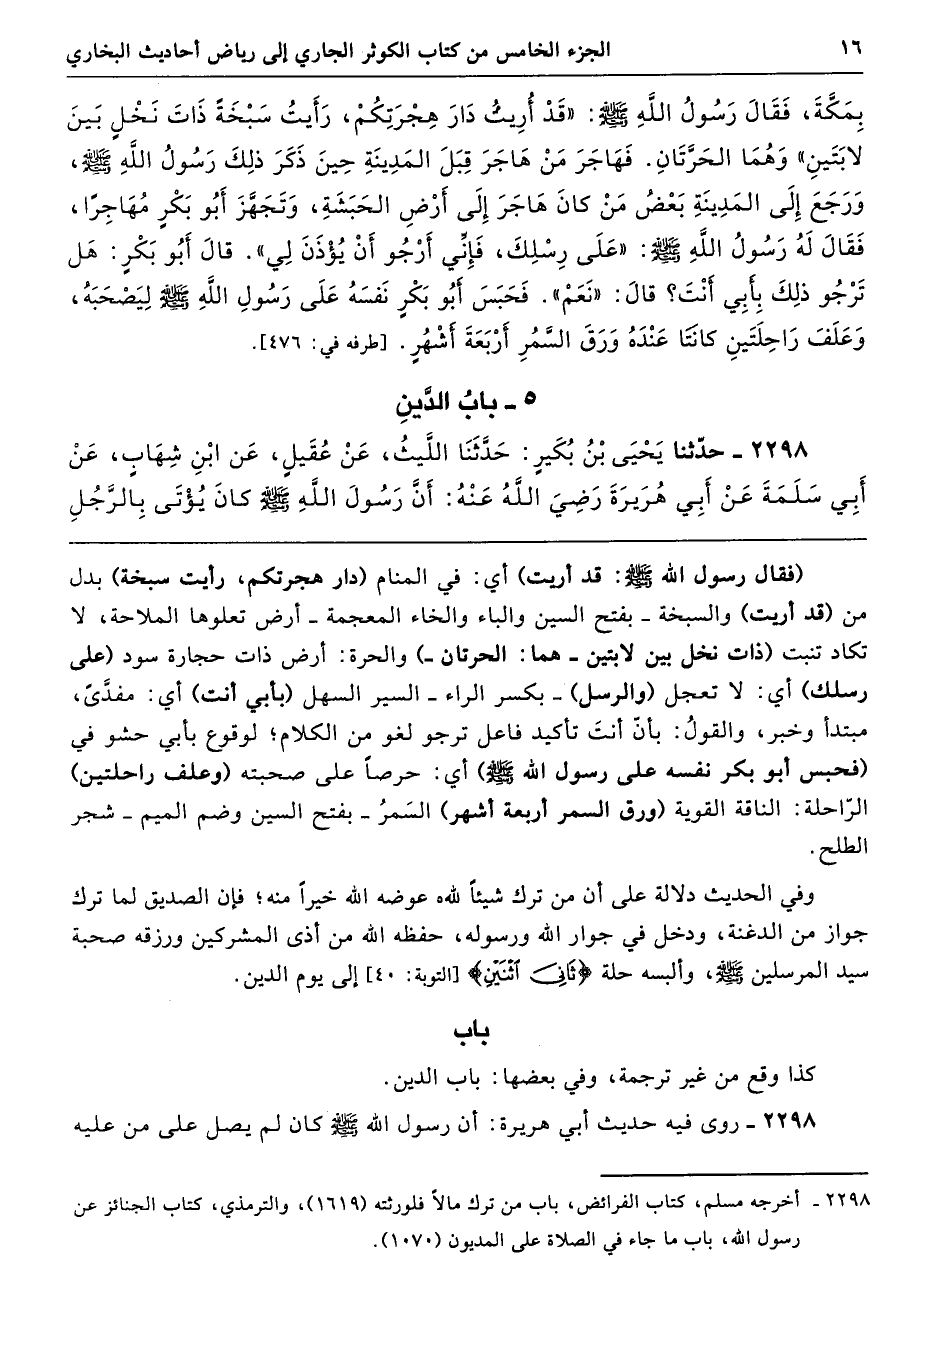 ١٦ الجزء الخامس من كتاب الكوثر الجاري إلى رياض أحاديث البخاري
بِمَكَّةَ، فَقَالَ رَسُولُ اللَّهِ ﷺ: «قَدْ أُرِيتُ دَارَ هِجْرَتِكُمْ، رَأَيتُ سَبْخَةً ذَاتَ نَخْلٍ بَينَ
لابَتَينِ» وَهُمَا الحَرَّتَانِ. فَهَاجَرَ مَنْ هَاجَرَ قِبَلَ المَدِينَةِ حِينَ ذَكَرَ ذلِكَ رَسُولُ اللَّهِ ﷺ،
وَرَجَعَ إِلَى المَدِينَةِ بَعْضُ مَنْ كانَ هَاجَرَ إِلَى أَرْضِ الحَبَشَةِ، وَتَجَهَّزَ أَبُو بَكْرٍ مُهَاجِرًا،
فَقَالَ لَهُ رَسُولُ اللَّهِ ﷺ: «عَلَى رِسْلِكَ، فَإِنِّي أَرْجُو أَنْ يُؤْذَنَ لِي». قالَ أَبُو بَكْرٍ: هَل
تَرْجُو ذلِكَ بِأَبِي أَنْتَ؟ قالَ: «نَعَمْ». فَحَبَسَ أَبُو بَكْرٍ نَفْسَهُ عَلَى رَسُولِ اللَّهِ ﷺ لِيَصْحَبَهُ،
وَعَلَفَ رَاحِلَتَينِ كانَتَا عَنْدَهُ وَرَقَ السَّمُرِ أَرْبَعَةَ أَشْهُرٍ. [طرفه في: ٤٧٦].
٥ ـ بابُ الدَّينِ
٢٢٩٨ ـ حدّثنا يَحْيَى بْنُ بُكَيرٍ: حَدَّثَنَا اللَّيثُ، عَنْ عُقَيلٍ، عَن ابْنِ شِهَابٍ، عَنْ
أَبِي سَلَمَةَ عَنْ أَبِي هُرَيرَةَ رَضِيَ اللَّهُ عَنْهُ: أَنَّ رَسُولَ اللَّهِ ﷺ كانَ يُؤْتَى بِالرَّجُلِ
(فقال رسول الله ﷺ: قد أريت) أي: في المنام (دار هجرتكم، رأيت سبخة) بدل
من (قد أريت) والسبخة ـ بفتح السين والباء والخاء المعجمة ـ أرض تعلوها الملاحة، لا
تكاد تنبت (ذات نخل بين لابتين ـ هما: الحرتان ـ) والحرة: أرض ذات حجارة سود (على
رسلك) أي: لا تعجل (والرسل) ـ بكسر الراء ـ السير السهل (بأبي أنت) أي: مفدَّىً،
مبتدأ وخبر، والقولُ: بأنّ أنتَ تأكيد فاعل ترجو لغو من الكلام؛ لوقوع بأبي حشو في
(فحبس أبو بكر نفسه على رسول الله ﷺ) أي: حرصاً على صحبته (وعلف راحلتين)
الرّاحلة: الناقة القوية (ورق السمر أربعة أشهر) السَمرُ ـ بفتح السين وضم الميم ـ شجر
الطلح.
وفي الحديث دلالة على أن من ترك شيئاً لله عوضه الله خيراً منه؛ فإن الصديق لما ترك
جواز من الدغنة، ودخل في جوار الله ورسوله، حفظه الله من أذى المشركين ورزقه صحبة
سيد المرسلين ﷺ، وألبسه حلة ﴿ثَانِيَ اثْنَيْنِ﴾ [التوبة: ٤٠] إلى يوم الدين.
باب
كذا وقع من غير ترجمة، وفي بعضها: باب الدين.
٢٢٩٨ ـ روى فيه حديث أبي هريرة: أن رسول الله ﷺ كان لم يصل على من عليه
٢٢٩٨ ـ أخرجه مسلم، كتاب الفرائض، باب من ترك مالاً فلورثته (١٦١٩)، والترمذي، كتاب الجنائز عن
رسول الله، باب ما جاء في الصلاة على المديون (١٠٧٠).